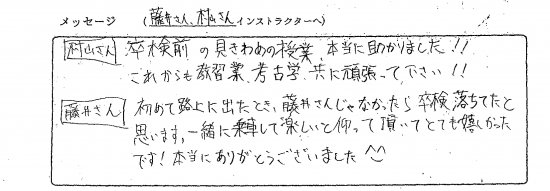 メッセージ (藤井さん、村山さんインストラクターへ)
村山さん 卒検前の見きわめの授業、本当に助かりました!!
これからも教習業、考古学、共に頑張って下さい!!
藤井さん 初めて路上に出たとき、藤井さんじゃなかったら卒検落ちてたと
思います。一緒に乗車して楽しいと仰って頂いてとても嬉しかった
です!本当にありがとうございました^^